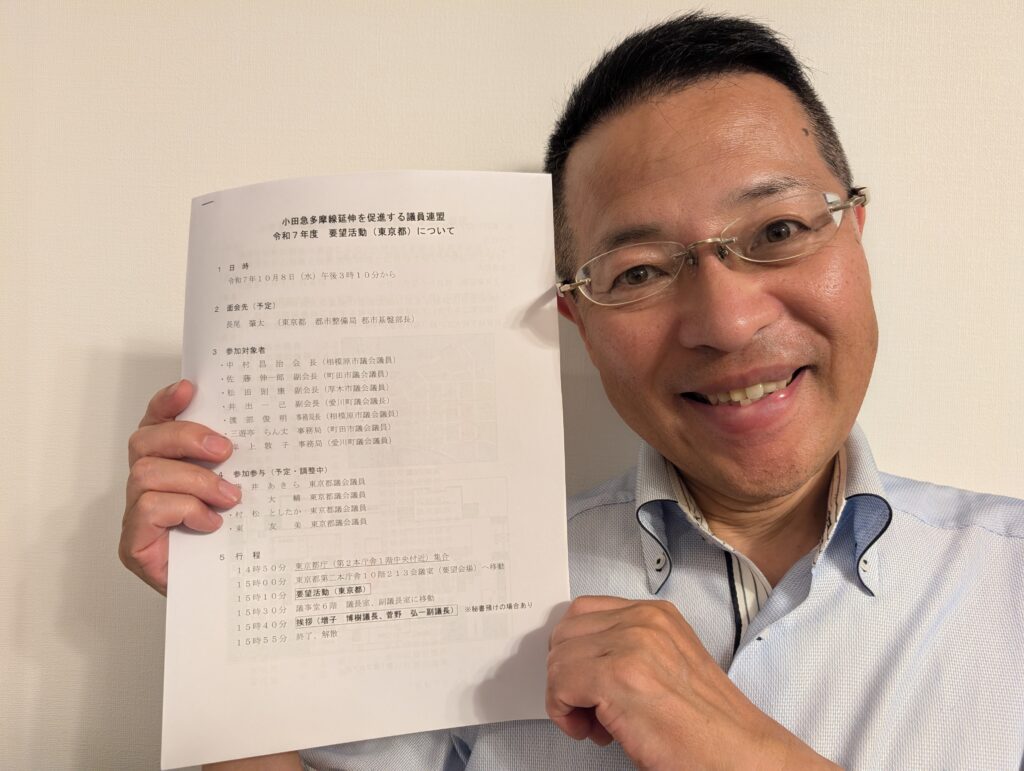 小田急多摩線延伸を促進する議員連盟
令和7年度　要望活動（東京都）について
1　日　時
令和7年10月8日（水）午後3時10分から
2　面会先（予定）
長尾　肇太　（東京都　都市整備局　都市基盤部長）
3　参加対象者
・中　村　昌　治　会　長（相模原市議会議員）
・佐　藤　伸一郎　副会長（町田市議会議員）
・松　田　則　康　副会長（厚木市議会議員）
・井　出　一　己　副会長（愛川町議会議長）
・渡　部　俊　明　事務局長（相模原市議会議員）
・三遊亭　らん丈　事務局（町田市議会議員）
上　敦　子　事務局（愛川町議会議員）
4　参加参与（予定・調整中）
井　あ　き　ら　東京都議会議員
大　輔　東京都議会議員
・村　松　としたか　東京都議会議員
・東　　友　美　東京都議会議員
5　行　程
14時50分　東京都庁（第2本庁舎1階中央付近）集合
15時00分　東京都第二本庁舎10階213会議室（要望会場）へ移動
15時10分　要望活動（東京都）
15時30分　議事堂6階　議長室、副議長室に移動
15時40分　挨拶（増子　博樹議長、菅野　弘一副議長）　※秘書預けの場合あり
15時55分　終了、解散